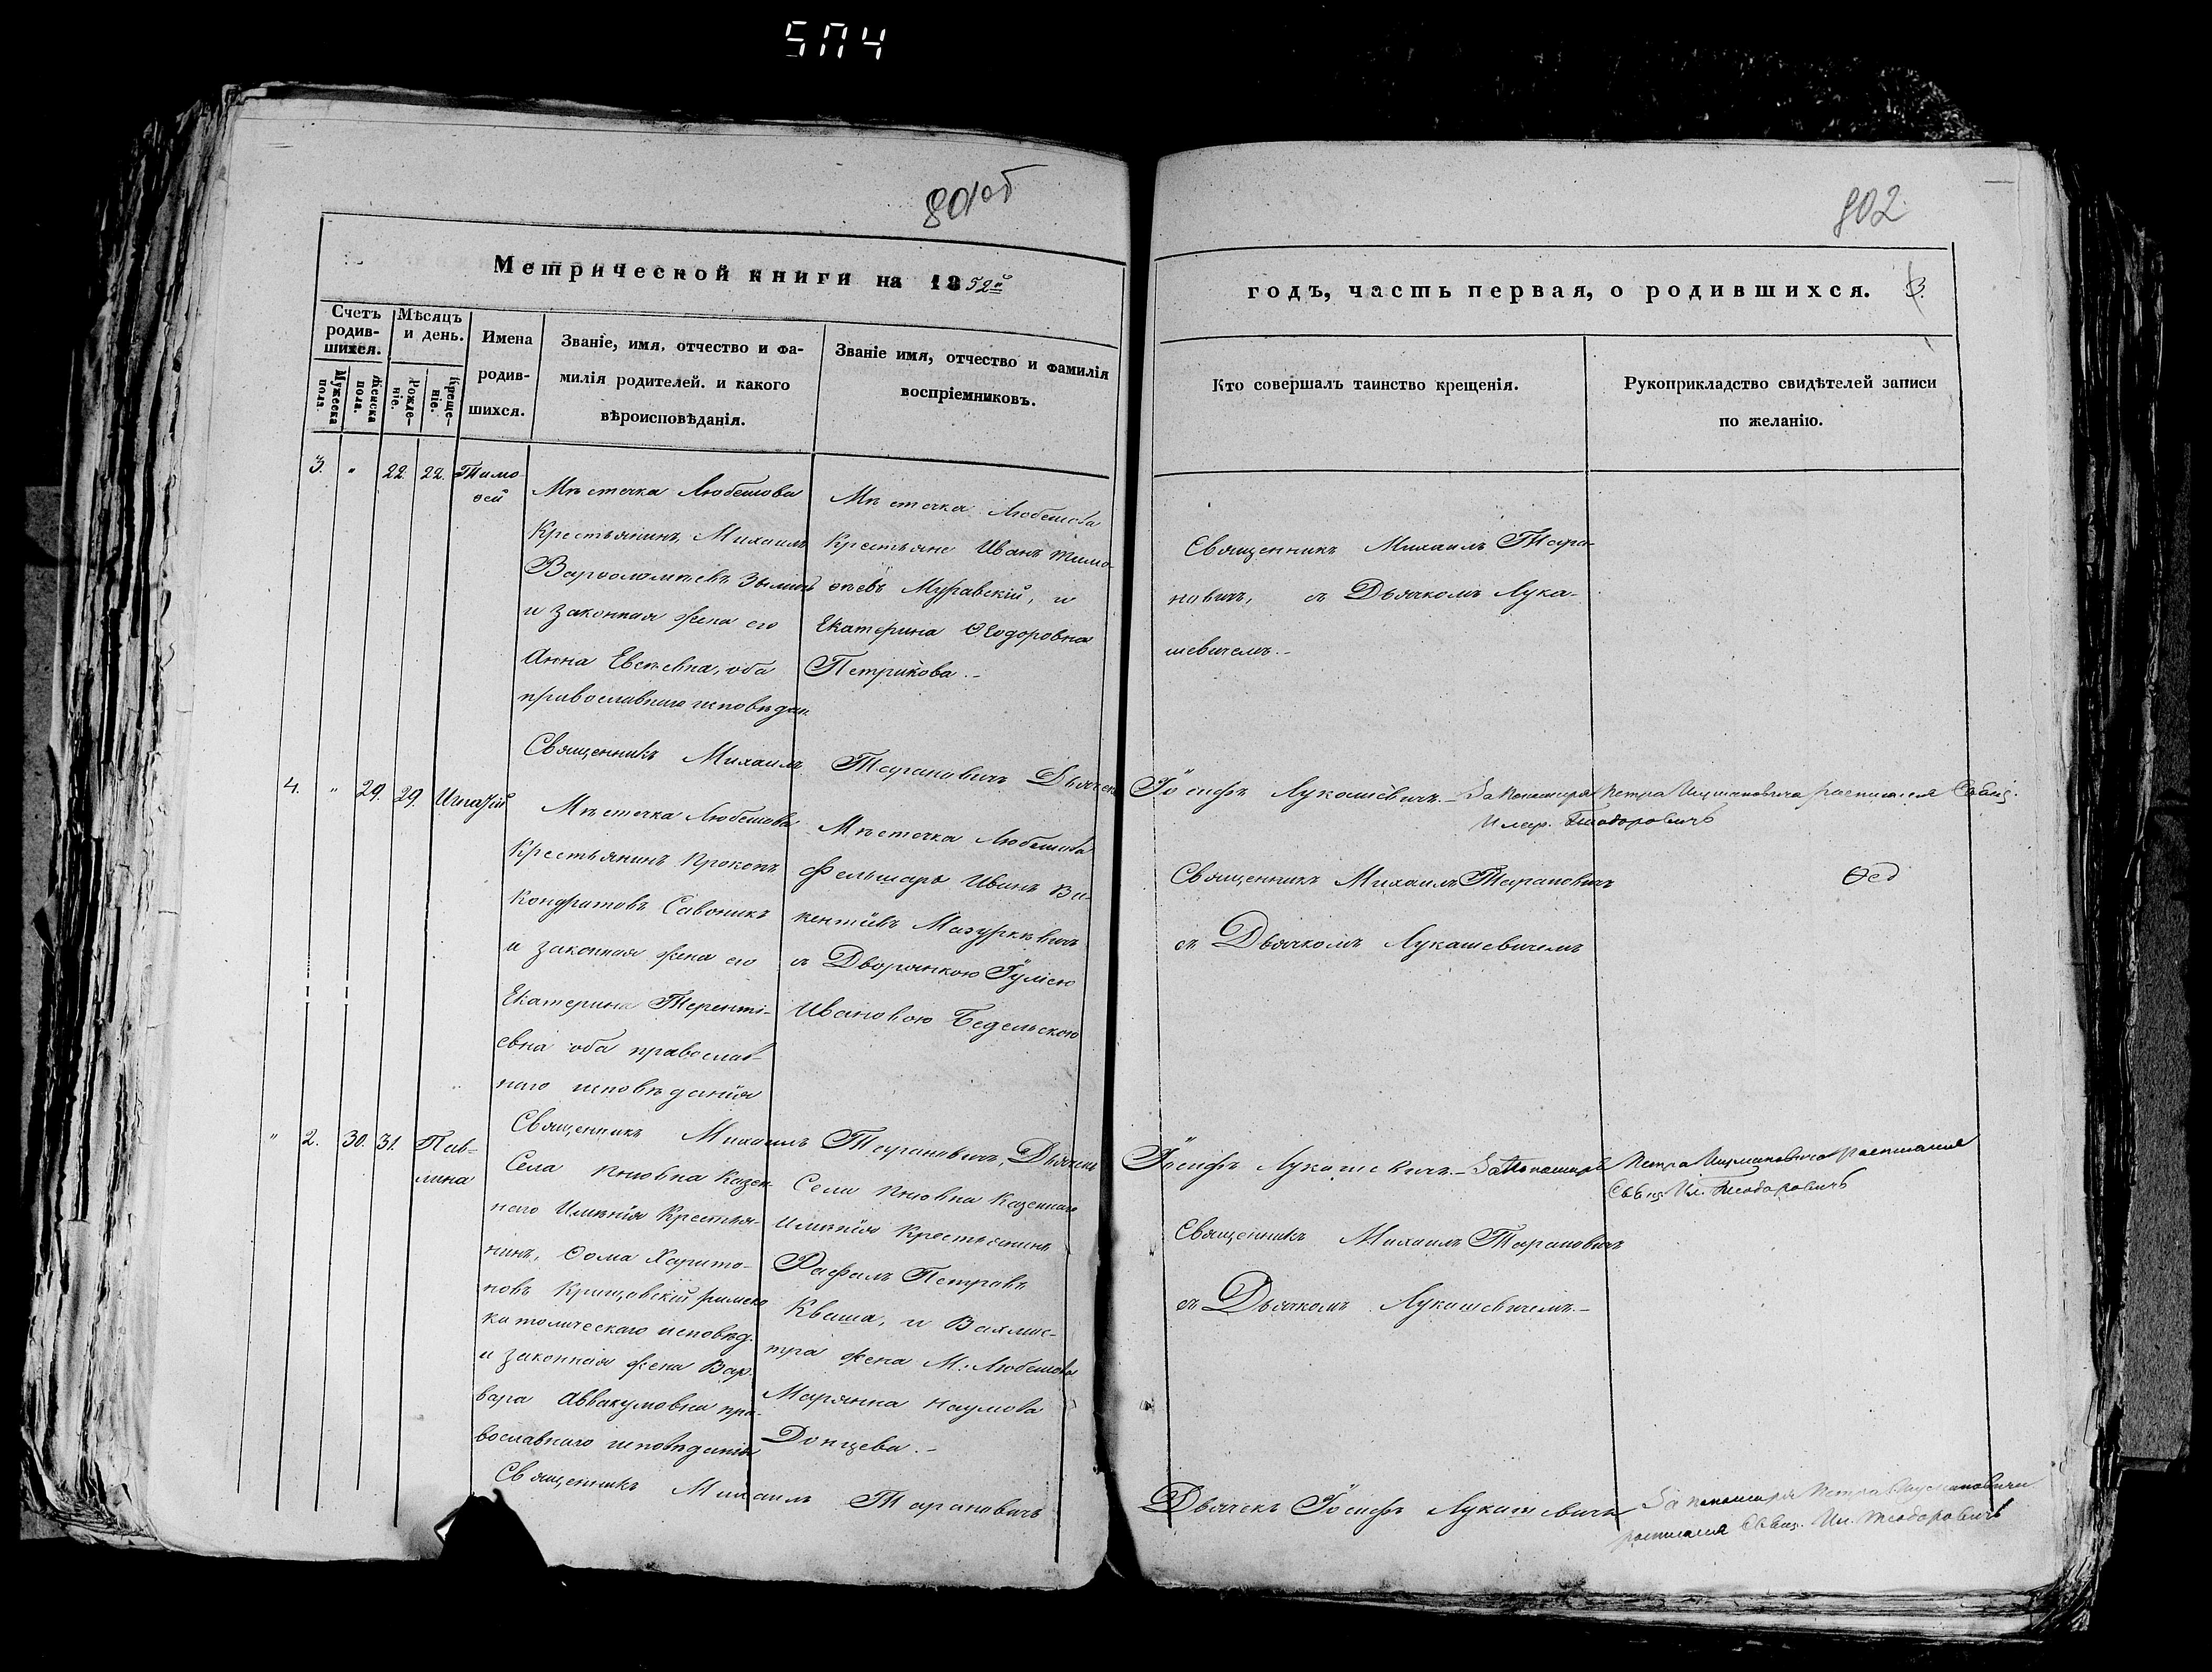 5П4
801об
802
Метрической книги на 1852й
годъ, часть первая, о родившихся.
3.
Счетъ родившихся.
Мужеска пола.
Женска пола.
Мѣсяцъ и день.
Рожденіе.
Крещеніе.
Имена
родив-
шихся.
Званіе, имя, отчество и фа-
милія родителей. и какого
вѣроисповѣданія.
Званіе имя, отчество и фамилія
воспріемниковъ.
Кто совершалъ таинство крещенія.
Рукоприкладство свидѣтелей записи
по желанію.
3. " 22. 22. Тимо-
ѳей
Мѣстечка Любешова
Крестьянинъ, Михаилъ
Варѳоломѣевъ
и законная жена его
Анна Евсѣевна, оба
православнаго исповѣдан.
Мѣстечка Любешова
Крестьяне Иванъ Тимо-
ѳѣевъ Муравскій, и
Екатерина Ѳеодоровна
Петрикова.-
Священникъ Михаилъ Тара-
новичъ, съ Дьячкомъ Лука-
шевичемъ.-
Священникъ Михаилъ Тарановичъ Дьячекъ Іосифъ Лукашевичъ.- За Петра росписался Свящ.
Теодоровичъ
4. " 29. 29. Игнатій
Мѣстечка Любешова
Крестьянинъ Прокопъ
Кондратовъ Савоникъ
и законная жена его
Екатерина Теренті-
евна оба православ-
наго исповѣданія
Мѣстечка Любешова
Фельшаръ Иванъ Ви-
кентіевъ Мазуркевичъ
съ Дворянкою Іуліею
Ивановою Бедельскою
Священникъ Михаилъ Тарановичъ
съ Дьячкомъ Лукашевичемъ
Ѳед
Священникъ Михаилъ Тарановичъ, Дьячекъ Іосифъ Лукашевичъ.- За Петра росписался
Свящ. Ил. Теодоровичъ
" 2. 30. 31. Пав-
лина
Села Пнювна Казен-
наго Имѣнія Крестья-
нинъ, Ѳома Харито-
новъ римско
католическаго исповѣд.
и законная жена Вар-
вара Аввакумовна пра-
вославнаго исповѣданія
Села Пнювна Казеннаго
Имѣнія Крестьянинъ
Рафалъ Петровъ
Кваша, и Вахмис-
тра жена М. Любешова
Марянна Наумова
Донцева.-
Священникъ Михаилъ Тарановичъ
съ Дьячкомъ Лукашевичемъ.-
Священникъ Михаилъ Тарановичъ
Дьячекъ Іосифъ Лукашевичъ За Петра
росписался Свящ. Ил. Теодоровичъ